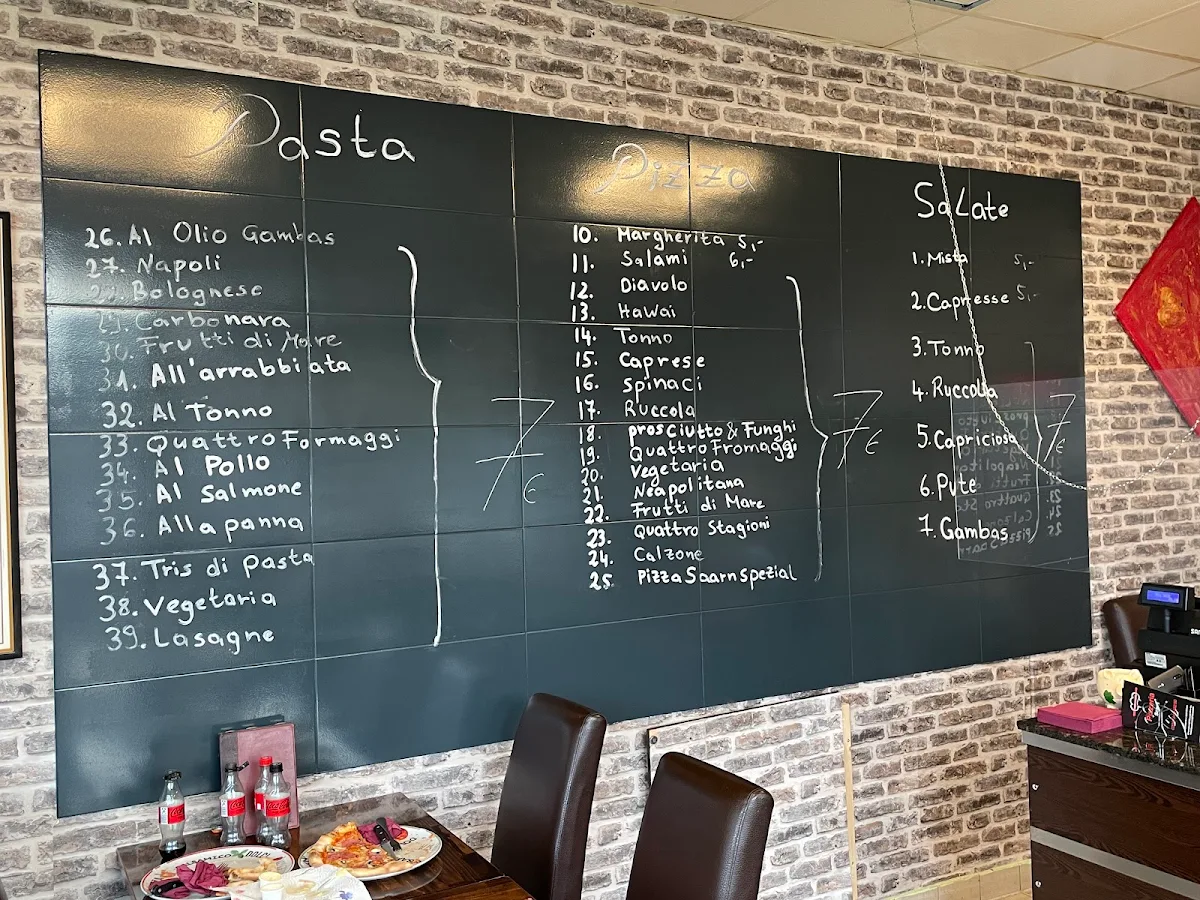 Pasta
26. Al Olio Gambas
27. Napoli
Bolognese
29. Carbonara
30. Frutti di Mare
31. All'arrabbiata
32. Al Tonno
33. Quattro Formaggi
34. Al Pollo
35. Al Salmone
36. Alla panna
37. Tris di Pasta
38. Vegetaria
39. Lasagne
7€
Pizza
10. Margherita 5,-
11. Salami 6,-
12. Diavolo
13. Hawai
14. Tonno
15. Caprese
16. Spinaci
17. Ruccola
18. prosciutto & Funghi
19. Quattro Fromaggi
20. Vegetaria
21. Neapolitana
22. Frutti di Mare
23. Quattro Stagioni
24. Calzone
25. Pizza Saarn spezial
7€
Salate
1. Mista 5,-
2. Capresse 5,-
3. Tonno
4. Ruccolla
5. Capriciosa
6. Pute
7. Gambas
7€